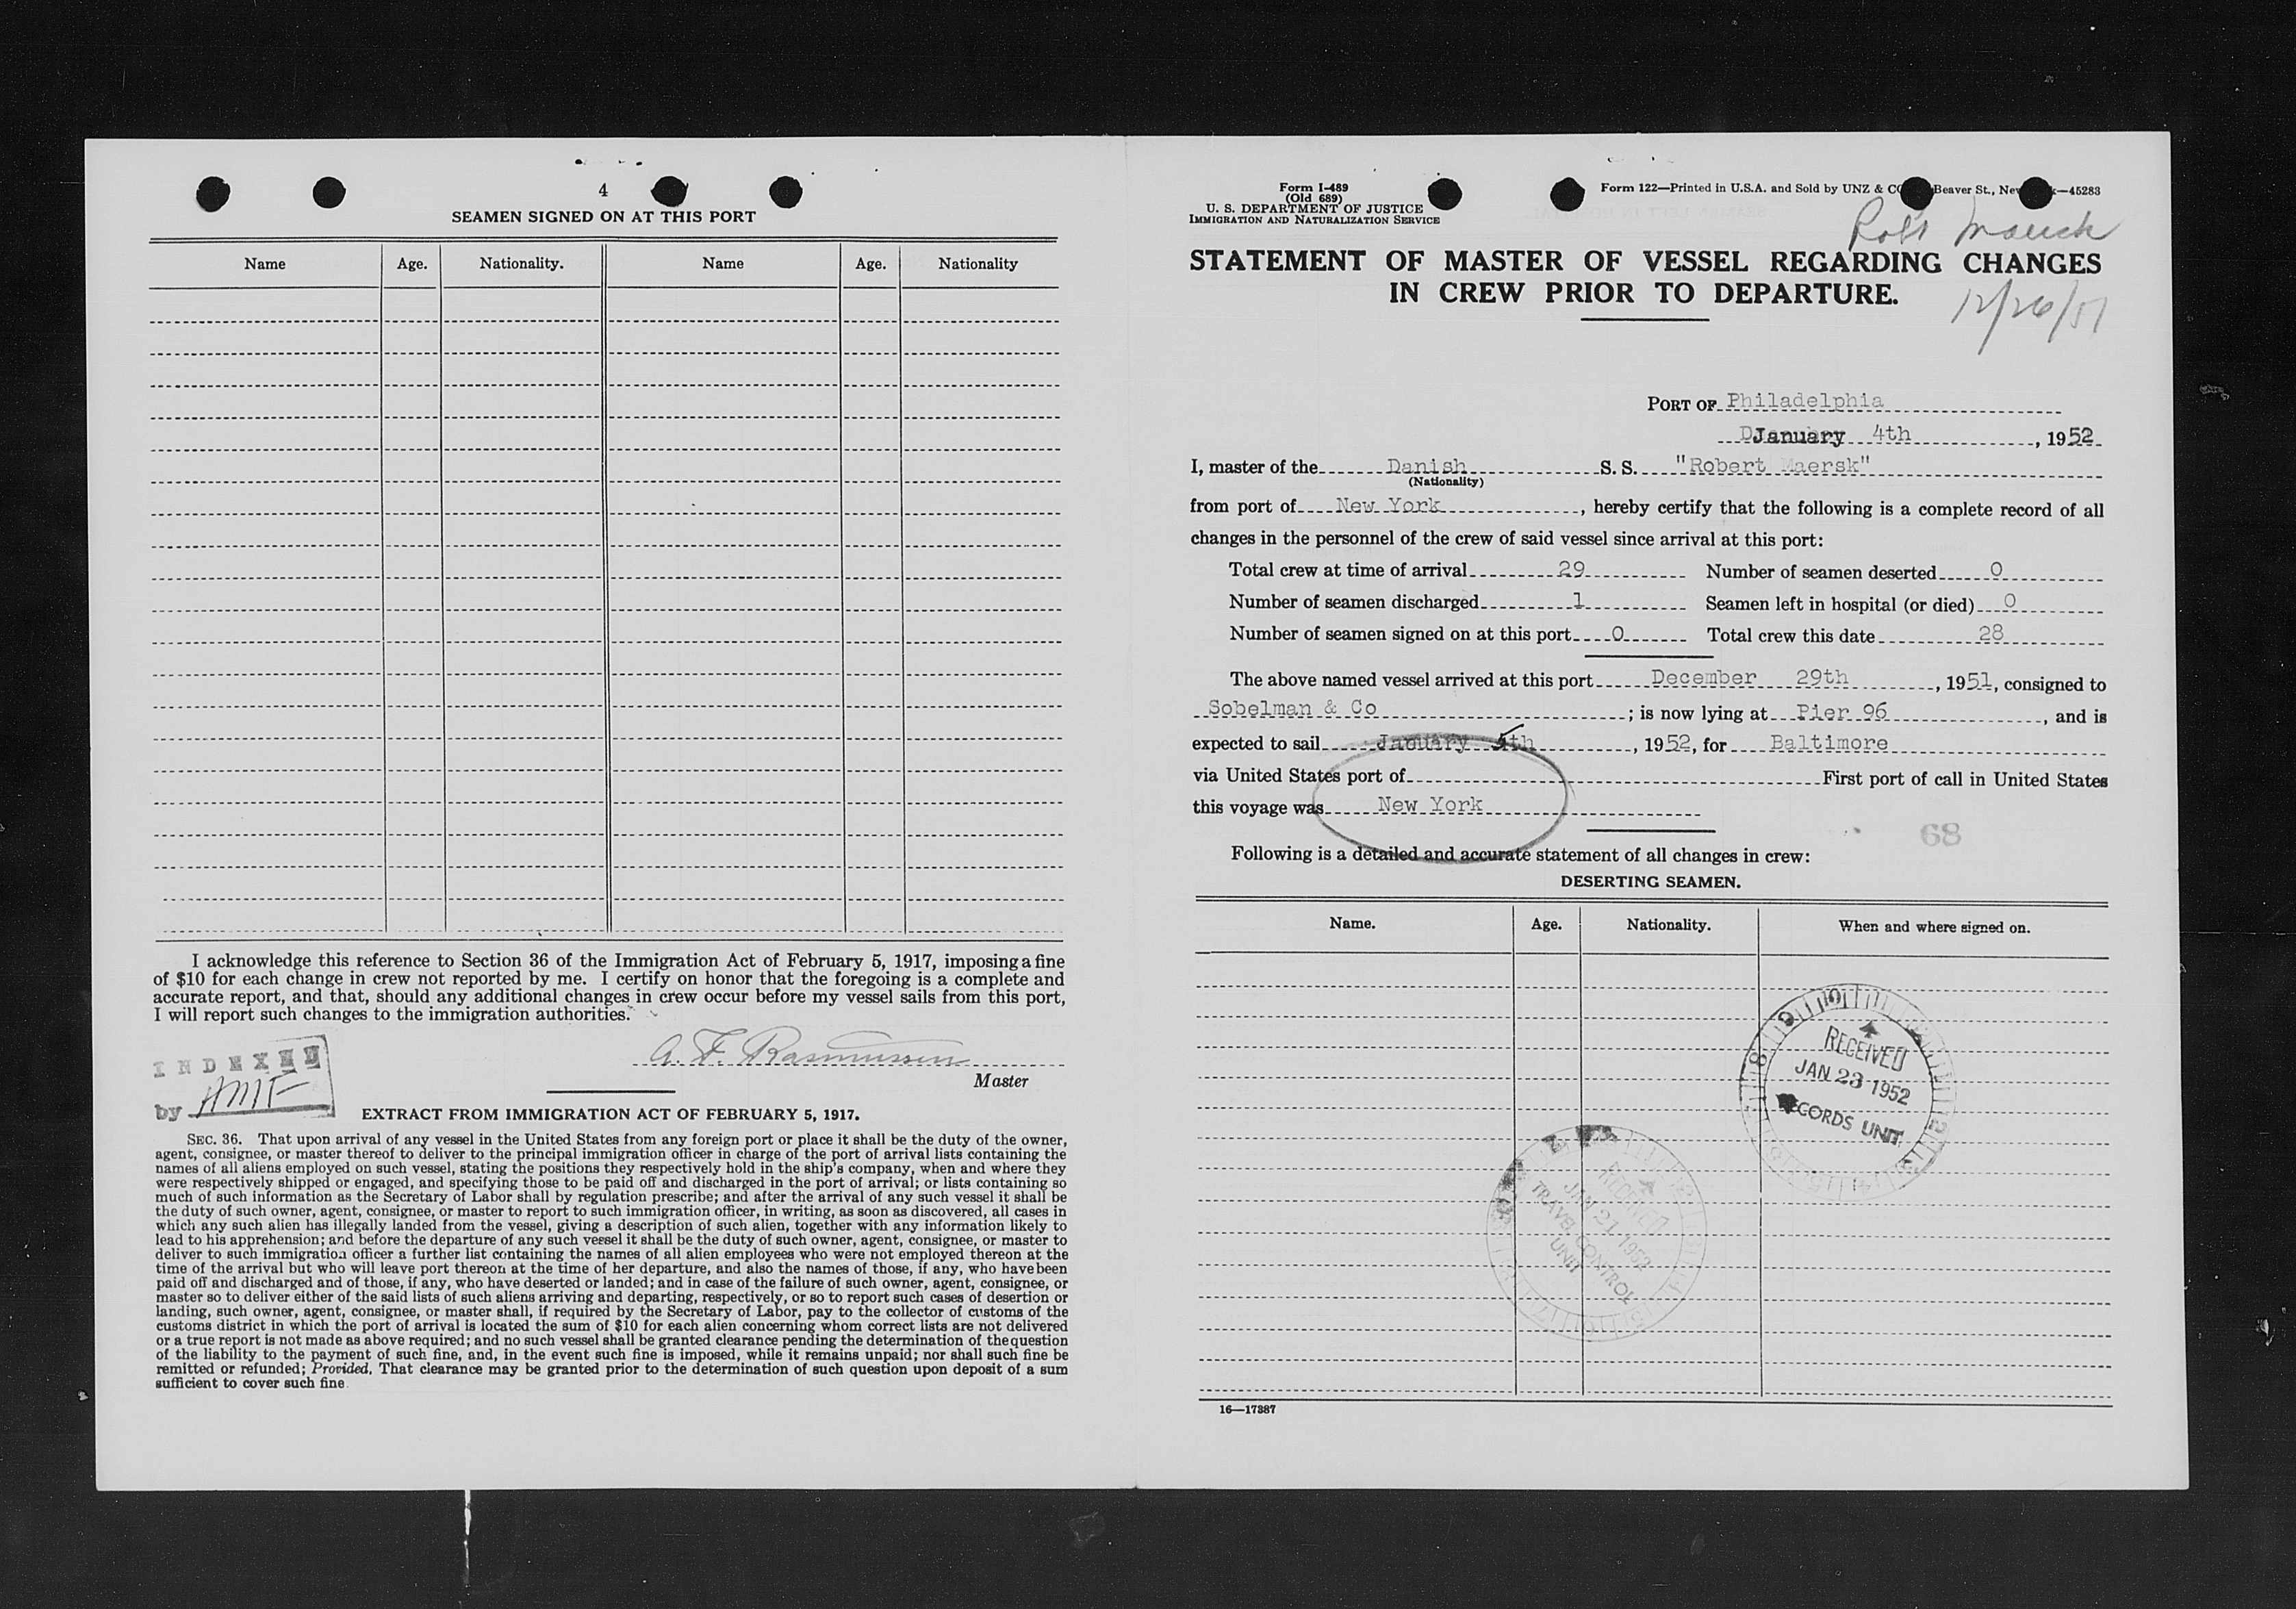 4
SEAMEN SIGNED ON AT THIS PORT
Name Age. Nationality. Name Age. Nationality
I acknowledge this reference to Section 36 of the Immigration Act of February 5, 1917, imposing a fine
of $10 for each change in crew not reported by me. I certify on honor that the foregoing is a complete and
accurate report, and that, should any additional changes in crew occur before my vessel sails from this port,
I will report such changes to the immigration authorities.
A. F. Rasmussen
Master
INDEXED
by
EXTRACT FROM IMMIGRATION ACT OF FEBRUARY 5, 1917.
SEC. 36. That upon arrival of any vessel in the United States from any foreign port or place it shall be the duty of the owner,
agent, consignee, or master thereof to deliver to the principal immigration officer in charge of the port of arrival lists containing the
names of all aliens employed on such vessel, stating the positions they respectively hold in the ship's company, when and where they
were respectively shipped or engaged, and specifying those to be paid off and discharged in the port of arrival; or lists containing so
much of such information as the Secretary of Labor shall by regulation prescribe; and after the arrival of any such vessel it shall be
the duty of such owner, agent, consignee, or master to report to such immigration officer, in writing, as soon as discovered, all cases in
which any such alien has illegally landed from the vessel, giving a description of such alien, together with any information likely to
lead to his apprehension; and before the departure of any such vessel it shall be the duty of such owner, agent, consignee, or master to
deliver to such immigration officer a further list containing the names of all alien employees who were not employed thereon at the
time of the arrival but who will leave port thereon at the time of her departure, and also the names of those, if any, who have been
paid off and discharged and of those, if any, who have deserted or landed; and in case of the failure of such owner, agent, consignee, or
master so to deliver either of the said lists of such aliens arriving and departing, respectively, or so to report such cases of desertion or
landing, such owner, agent, consignee, or master shall, if required by the Secretary of Labor, pay to the collector of customs of the
customs district in which the port of arrival is located the sum of $10 for each alien concerning whom correct lists are not delivered
or a true report is not made as above required; and no such vessel shall be granted clearance pending the determination of the question
of the liability to the payment of such fine, and, in the event such fine is imposed, while it remains unpaid; nor shall such fine be
remitted or refunded; Provided, That clearance may be granted prior to the determination of such question upon deposit of a sum
sufficient to cover such fine
Form I-489
(Old 689)
U. S. DEPARTMENT OF JUSTICE
IMMIGRATION AND NATURALIZATION SERVICE
Form 122—Printed in U.S.A. and Sold by UNZ & CO Beaver St., New —45283
Robt Maersk
STATEMENT OF MASTER OF VESSEL REGARDING CHANGES
IN CREW PRIOR TO DEPARTURE.
12/26/51
PORT OF Philadelphia
January 4th, 1952
I, master of the Danish S. S. "Robert Maersk"
(Nationality)
from port of New York, hereby certify that the following is a complete record of all
changes in the personnel of the crew of said vessel since arrival at this port:
Total crew at time of arrival 29 Number of seamen deserted 0
Number of seamen discharged 1 Seamen left in hospital (or died) 0
Number of seamen signed on at this port 0 Total crew this date 28
The above named vessel arrived at this port December 29th, 1951, consigned to
Sobelman & Co; is now lying at Pier 96, and is
expected to sail January 5th, 1952, for Baltimore
via United States port of First port of call in United States
this voyage was New York
68
Following is a detailed and accurate statement of all changes in crew:
DESERTING SEAMEN.
Name. Age. Nationality. When and where signed on.
RECEIVED
JAN 23 1952
RECORDS UNIT
RECEIVED
JAN 21 1952
TRAVEL CONTROL
UNIT
16—17387